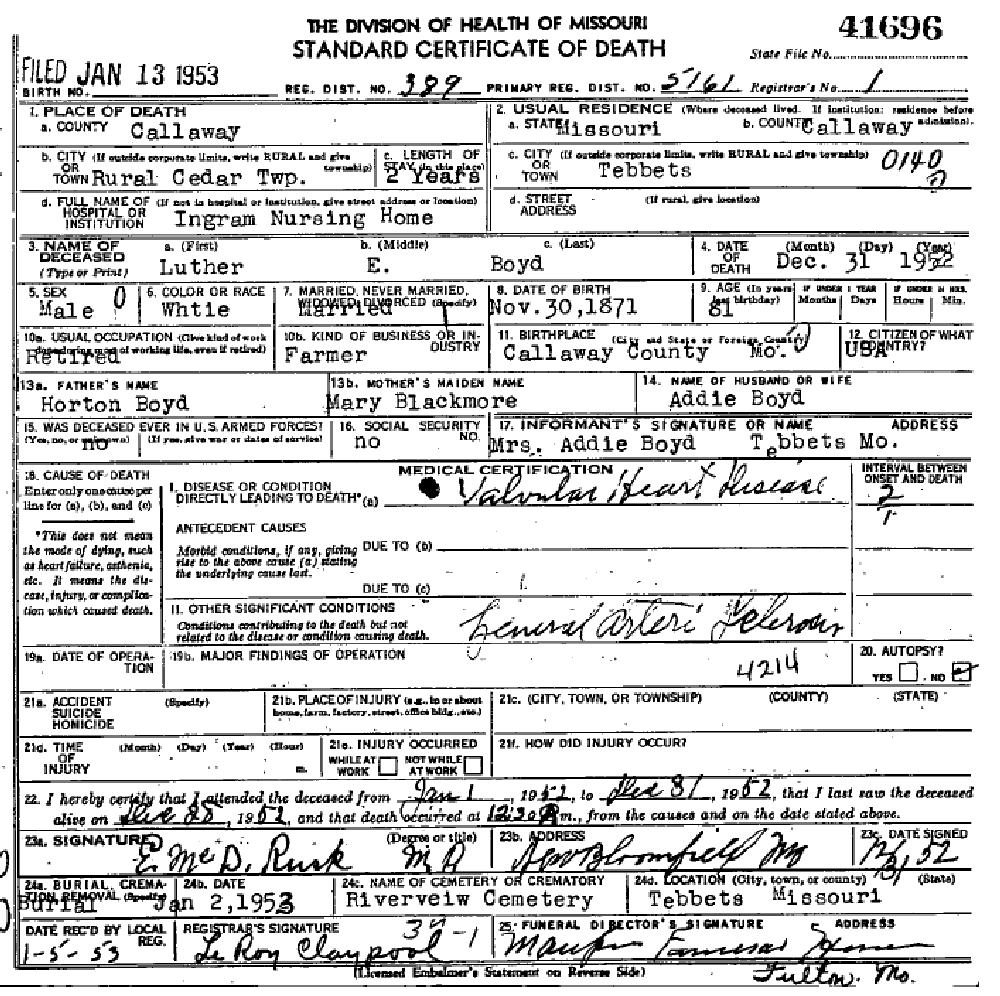 THE DIVISION OF HEALTH OF MISSOURI
41696
STANDARD CERTIFICATE OF DEATH
State File No.
FILED JAN 13 1953
BIRTH NO. REG. DIST. NO. 389 PRIMARY REG. DIST. NO. 5161 Registrar's No. 1
1. PLACE OF DEATH
a. COUNTY Callaway
2. USUAL RESIDENCE (Where deceased lived. If institution: residence before admission).
a. STATE Missouri b. COUNTY Callaway
b. CITY (If outside corporate limits, write RURAL and give township)
OR
TOWN Rural Cedar Twp.
c. LENGTH OF
STAY (in this place)
2 Years
c. CITY (If outside corporate limits, write RURAL and give township)
OR
TOWN Tebbets 0140
d. FULL NAME OF (If not in hospital or institution, give street address or location)
HOSPITAL OR
INSTITUTION Ingram Nursing Home
d. STREET (If rural, give location)
ADDRESS
3. NAME OF DECEASED (Type or Print)
a. (First) b. (Middle) c. (Last)
Luther E. Boyd
4. DATE OF DEATH (Month) (Day) (Year)
Dec. 31 1952
5. SEX
Male 0
6. COLOR OR RACE
Whtie
7. MARRIED, NEVER MARRIED, WIDOWED, DIVORCED (Specify)
Married 1
8. DATE OF BIRTH
Nov. 30,1871
9. AGE (In years last birthday) IF UNDER 1 YEAR Months Days IF UNDER 24 HRS. Hours Min.
81
10a. USUAL OCCUPATION (Give kind of work done during most of working life, even if retired)
Retired
10b. KIND OF BUSINESS OR INDUSTRY
Farmer
11. BIRTHPLACE (City and State or Foreign Country)
Callaway County Mo. 0
12. CITIZEN OF WHAT COUNTRY?
USA
13a. FATHER'S NAME
Horton Boyd
13b. MOTHER'S MAIDEN NAME
Mary Blackmore
14. NAME OF HUSBAND OR WIFE
Addie Boyd
15. WAS DECEASED EVER IN U.S. ARMED FORCES?
(Yes, no, or unknown) (If yes, give war or dates of service)
no
16. SOCIAL SECURITY NO.
no
17. INFORMANT'S SIGNATURE OR NAME ADDRESS
Mrs. Addie Boyd Tebbets Mo.
18. CAUSE OF DEATH
Enter only one cause per
line for (a), (b), and (c)
*This does not mean
the mode of dying, such
as heart failure, asthenia,
etc. It means the dis-
ease, injury, or complica-
tion which caused death.
MEDICAL CERTIFICATION
I. DISEASE OR CONDITION
DIRECTLY LEADING TO DEATH* (a) Valvular Heart Disease
INTERVAL BETWEEN
ONSET AND DEATH
ANTECEDENT CAUSES
Morbid conditions, if any, giving
rise to the above cause (a) stating
the underlying cause last.
DUE TO (b)
DUE TO (c)
II. OTHER SIGNIFICANT CONDITIONS
Conditions contributing to the death but not
related to the disease or condition causing death.
General Arteri Sclerosis
19a. DATE OF OPERATION
19b. MAJOR FINDINGS OF OPERATION
4214
20. AUTOPSY?
YES NO
21a. ACCIDENT (Specify)
SUICIDE
HOMICIDE
21b. PLACE OF INJURY (e.g., in or about
home, farm, factory, street, office bldg., etc.)
21c. (CITY, TOWN, OR TOWNSHIP) (COUNTY) (STATE)
21d. TIME (Month) (Day) (Year) (Hour)
OF
INJURY m.
21e. INJURY OCCURRED
WHILE AT WORK NOT WHILE AT WORK
21f. HOW DID INJURY OCCUR?
22. I hereby certify that I attended the deceased from Jan 1, 1952, to Dec 31, 1952, that I last saw the deceased
alive on Dec 28, 1952, and that death occurred at 12:30 P m., from the causes and on the date stated above.
23a. SIGNATURE (Degree or title)
E. McD. Rusk MD
23b. ADDRESS
New Bloomfield Mo
23c. DATE SIGNED
12/31/52
24a. BURIAL, CREMATION, REMOVAL (Specify)
Burial
24b. DATE
Jan 2,1953
24c. NAME OF CEMETERY OR CREMATORY
Riverveiw Cemetery
24d. LOCATION (City, town, or county) (State)
Tebbets Missouri
DATE REC'D BY LOCAL REG.
1-5-53
REGISTRAR'S SIGNATURE
LeRoy Claypool
25. FUNERAL DIRECTOR'S SIGNATURE ADDRESS
Maupin Funeral Home
Fulton, Mo.
(Licensed Embalmer's Statement on Reverse Side)